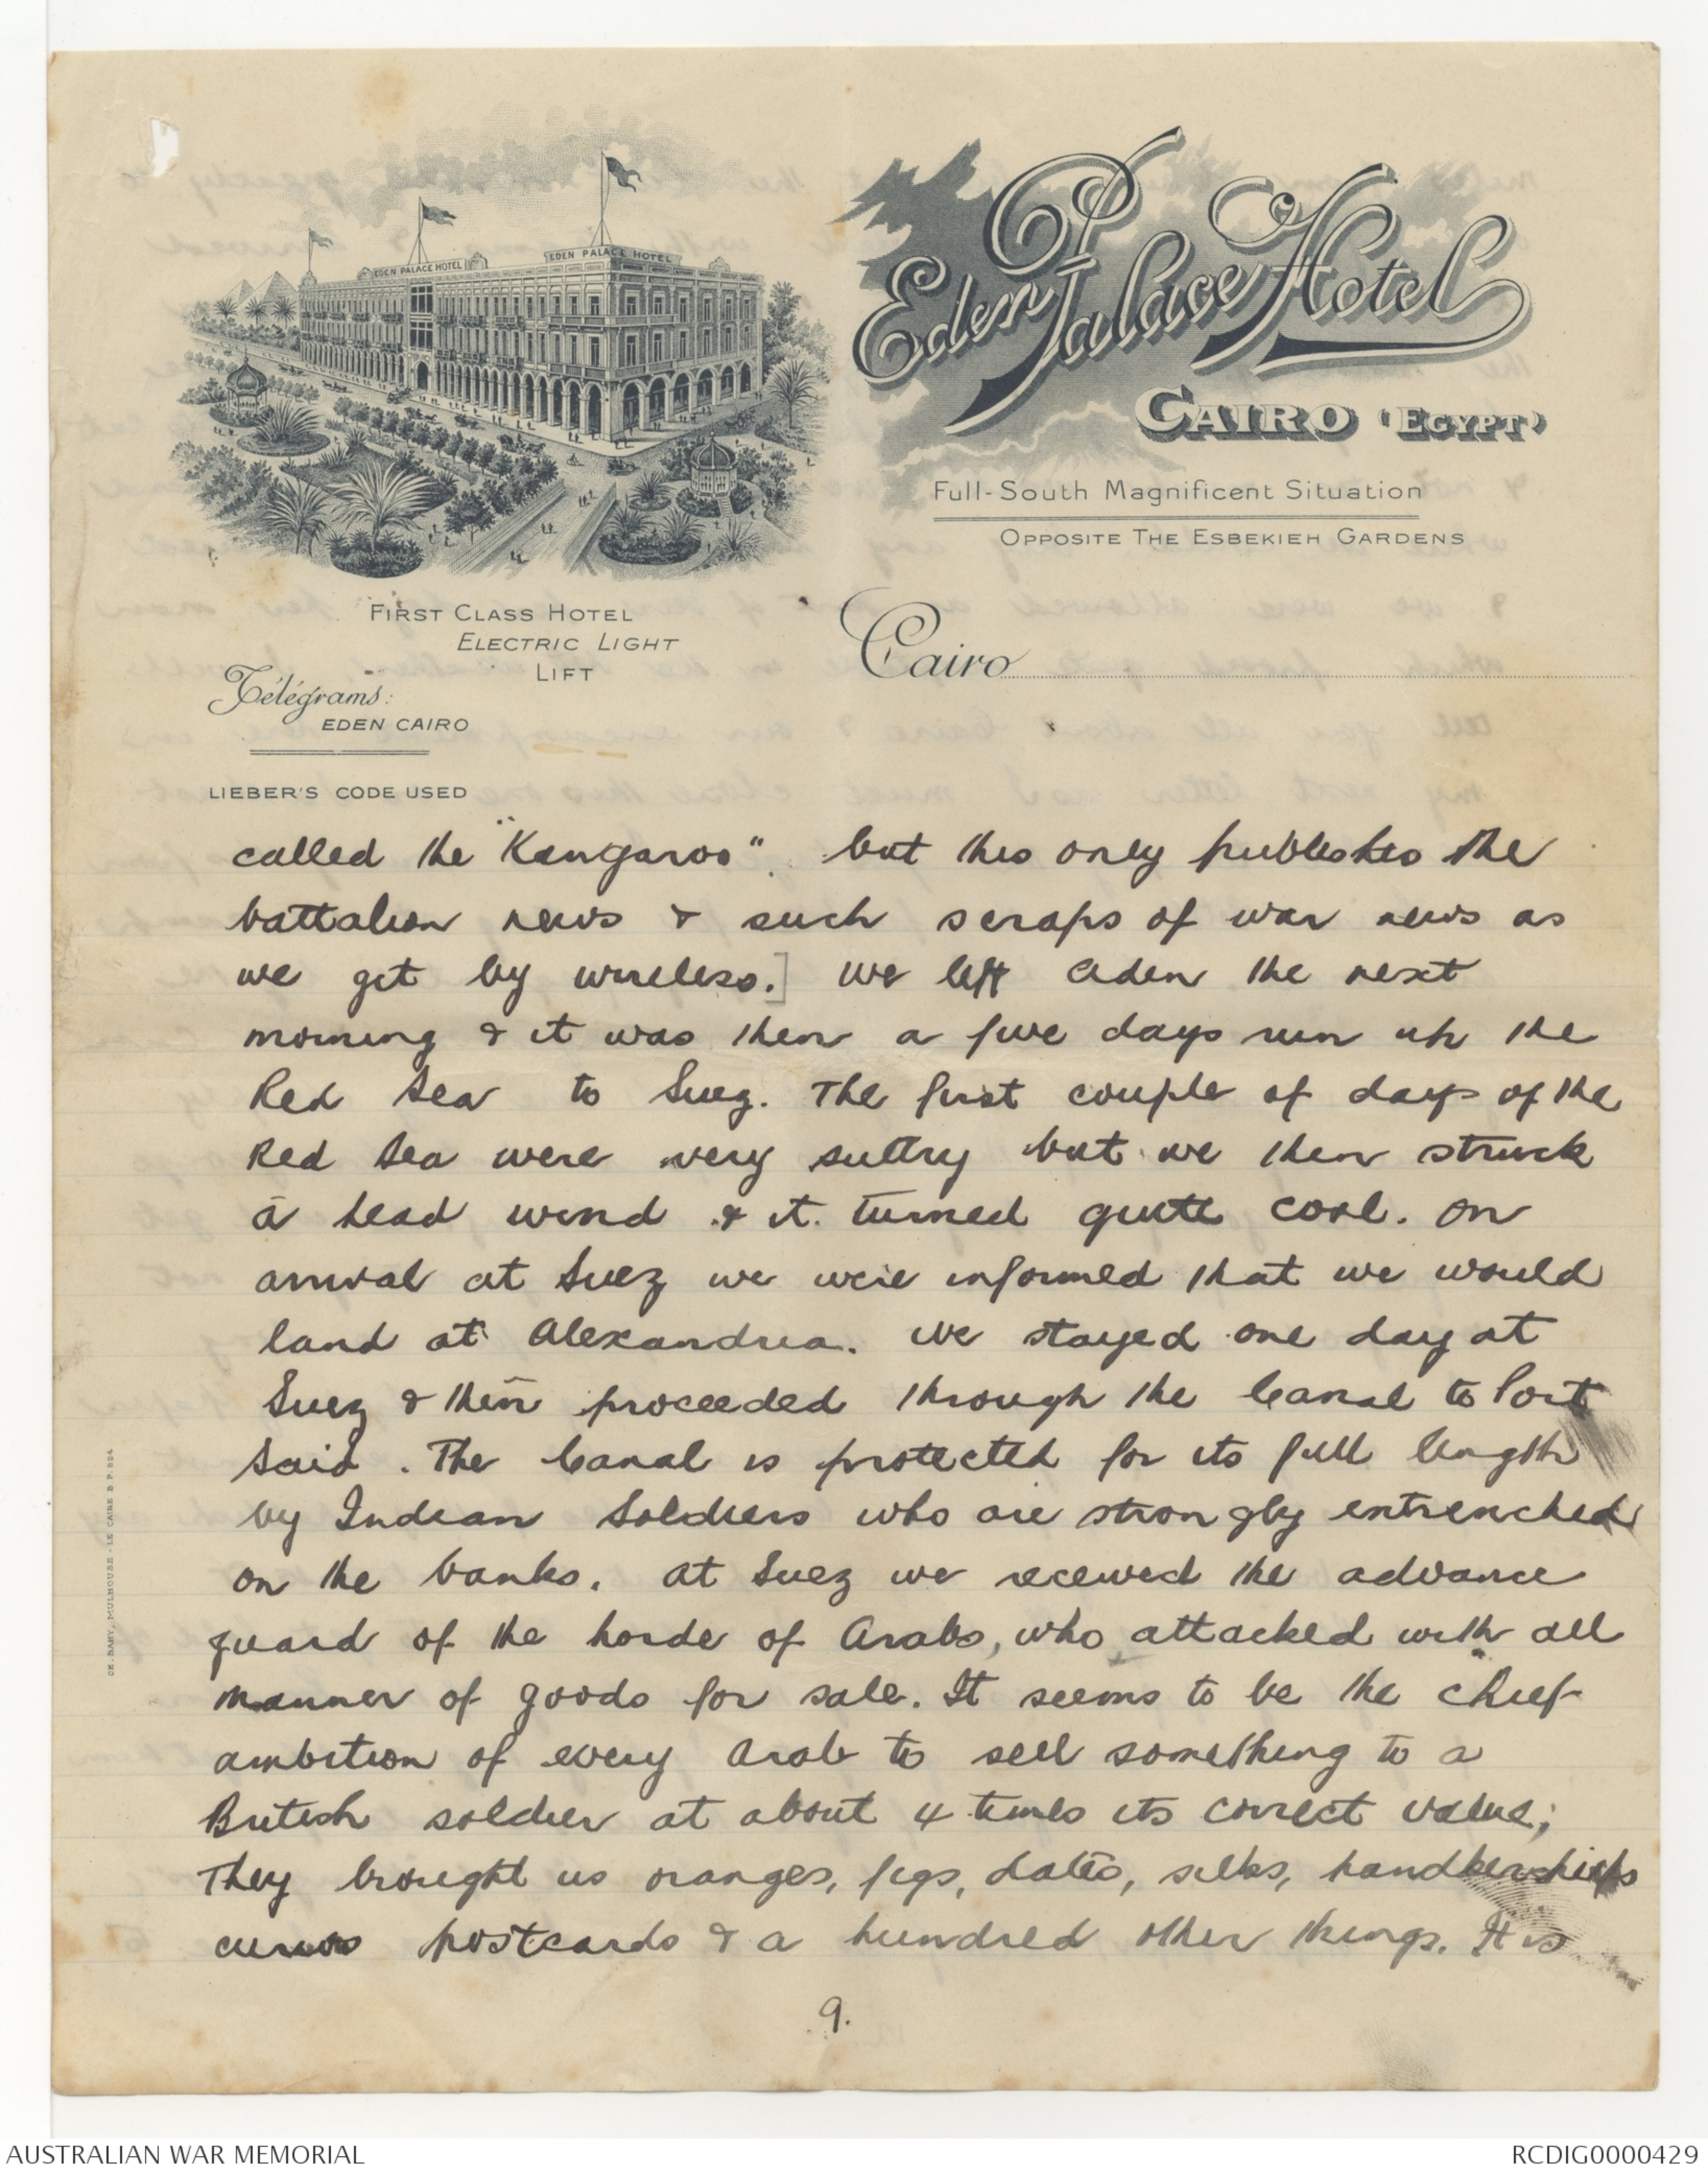 EDEN PALACE HOTEL
EDEN PALACE HOTEL
Eden Palace Hotel
CAIRO (EGYPT)
Full-South Magnificent Situation
OPPOSITE THE ESBEKIEH GARDENS
FIRST CLASS HOTEL
ELECTRIC LIGHT
LIFT
Cairo
Télégrams:
EDEN CAIRO
LIEBER'S CODE USED
called the "Kangaroo". but this only publishes the
battalion news & such scraps of war news as
we get by wireless.] We left Aden the next
morning & it was then a five days run up the
Red Sea to Suez. The first couple of days of the
Red Sea were very sultry but we then struck
a head wind & it turned quite cool. On
arrival at Suez we were informed that we would
land at Alexandria. We stayed one day at
Suez & then proceeded through the Canal to Port
Said. The Canal is protected for its full length
by Indian Soldiers who are strongly entrenched
on the banks. At Suez we received the advance
guard of the horde of Arabs, who attacked with all
manner of goods for sale. It seems to be the chief
ambition of every Arab to sell something to a
British soldier at about 4 times its correct value;
They brought us oranges, figs, dates, silks, handkerchiefs
curios postcards & a hundred other things. It is
9.
CH. BAHY, MULHOUSE - LE CAIRE B.P. 824
AUSTRALIAN WAR MEMORIAL
RCDIG0000429